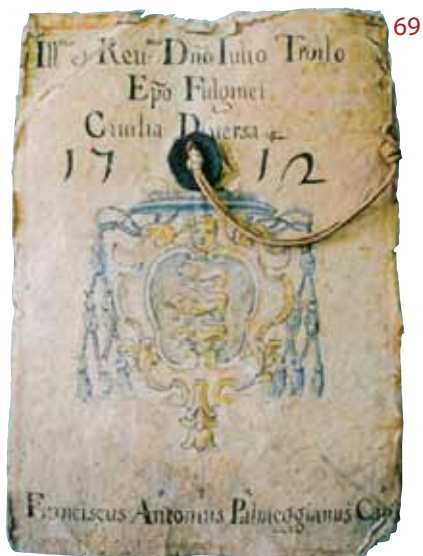 69
Ill.mo et Reu.mo Dño Iulio Troilo
Epō Fulginei
Ciuilia Diuersa
17 12
Franciscus Antonius Palmeggianus Can